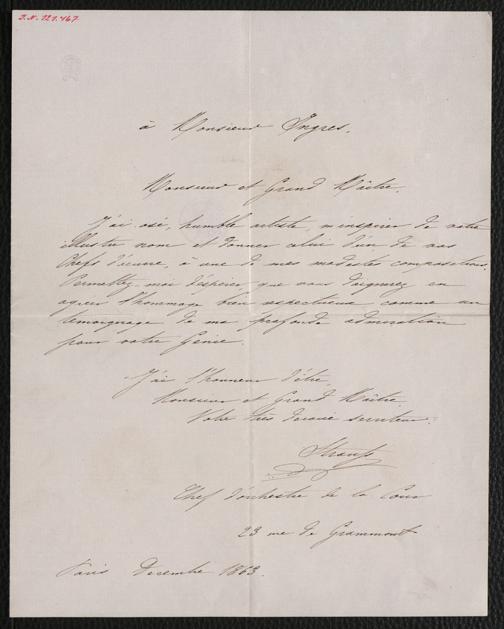 I.N. 221.467
à Monsieur Ingres.
Monsieur et Grand Maître.
J'ai osé, humble artiste, m'inspirer de votre
illustre nom et donner celui d'un de vos
Chefs d'œuvre, à une de mes modestes compositions.
Permettez moi d'espérer que vous daignerez en
agréer l'hommage bien respectueux comme un
témoignage de ma profonde admiration
pour votre Génie.
J'ai l'honneur d'être
Monsieur et Grand Maître
Votre très dévoué serviteur.
Strauss
Chef d'orchestre de la Cour
23 rue de Grammont
Paris Decembre 1863.